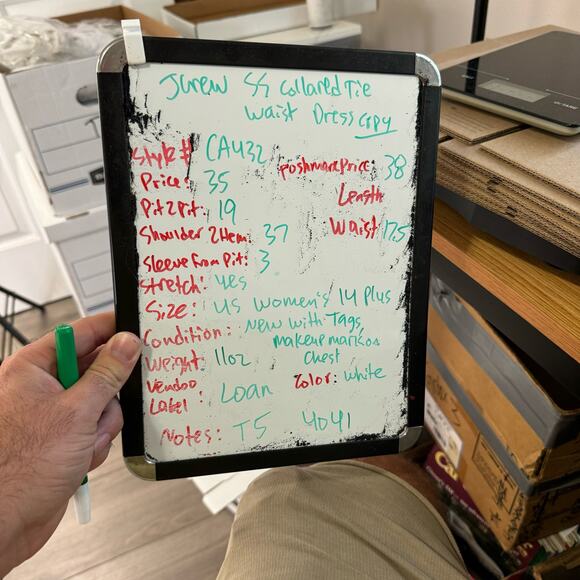 Jcrew SS Collared Tie
Waist Dress Copy
Style # CA432
Poshmark Price: 38
Price: 35
Length
Pit2Pit: 19
Waist 17.5
Shoulder 2 Hem: 37
Sleeve From Pit: 3
Stretch: yes
Size: US Women's 14 Plus
Condition: New with Tags,
makeup mark on
chest
Weight: 11oz
Color: white
Vendoo
Label: Loan
Notes: T5 4041